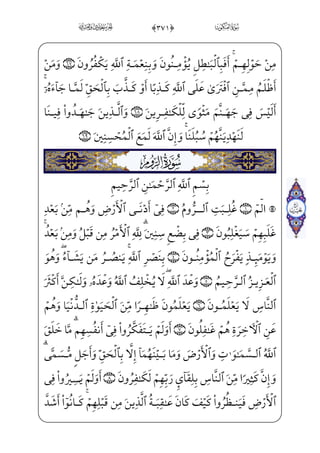 سُورَةُ العَنكَبُوتِ ﴿٣٧١﴾ الجُزْءُ
مِنْ حَوْلِهِمْ ۚ أَفَبِٱلْبَٰطِلِ يُؤْمِنُونَ وَبِنِعْمَةِ ٱللَّهِ يَكْفُرُونَ ۝ وَمَنْ
أَظْلَمُ مِمَّنِ ٱفْتَرَىٰ عَلَى ٱللَّهِ كَذِبًا أَوْ كَذَّبَ بِٱلْحَقِّ لَمَّا جَآءَهُۥٓ ۚ
أَلَيْسَ فِى جَهَنَّمَ مَثْوًى لِّلْكَٰفِرِينَ ۝ وَٱلَّذِينَ جَٰهَدُوا۟ فِينَا
لَنَهْدِيَنَّهُمْ سُبُلَنَا ۚ وَإِنَّ ٱللَّهَ لَمَعَ ٱلْمُحْسِنِينَ ۝
بِسْمِ ٱللَّهِ ٱلرَّحْمَٰنِ ٱلرَّحِيمِ
الٓمٓ ۝ غُلِبَتِ ٱلرُّومُ ۝ فِىٓ أَدْنَى ٱلْأَرْضِ وَهُم مِّنۢ بَعْدِ
غَلَبِهِمْ سَيَغْلِبُونَ ۝ فِى بِضْعِ سِنِينَ ۗ لِلَّهِ ٱلْأَمْرُ مِن قَبْلُ وَمِنۢ بَعْدُ ۚ
وَيَوْمَئِذٍ يَفْرَحُ ٱلْمُؤْمِنُونَ ۝ بِنَصْرِ ٱللَّهِ ۚ يَنصُرُ مَن يَشَآءُ ۖ وَهُوَ
ٱلْعَزِيزُ ٱلرَّحِيمُ ۝ وَعْدَ ٱللَّهِ ۖ لَا يُخْلِفُ ٱللَّهُ وَعْدَهُۥ وَلَٰكِنَّ أَكْثَرَ
ٱلنَّاسِ لَا يَعْلَمُونَ ۝ يَعْلَمُونَ ظَٰهِرًا مِّنَ ٱلْحَيَوٰةِ ٱلدُّنْيَا وَهُمْ
عَنِ ٱلْءَاخِرَةِ هُمْ غَٰفِلُونَ ۝ أَوَلَمْ يَتَفَكَّرُوا۟ فِىٓ أَنفُسِهِم ۗ مَّا خَلَقَ
ٱللَّهُ ٱلسَّمَٰوَٰتِ وَٱلْأَرْضَ وَمَا بَيْنَهُمَآ إِلَّا بِٱلْحَقِّ وَأَجَلٍ مُّسَمًّى ۗ
وَإِنَّ كَثِيرًا مِّنَ ٱلنَّاسِ بِلِقَآئِ رَبِّهِمْ لَكَٰفِرُونَ ۝ أَوَلَمْ يَسِيرُوا۟ فِى
ٱلْأَرْضِ فَيَنظُرُوا۟ كَيْفَ كَانَ عَٰقِبَةُ ٱلَّذِينَ مِن قَبْلِهِمْ ۚ كَانُوٓا۟ أَشَدَّ